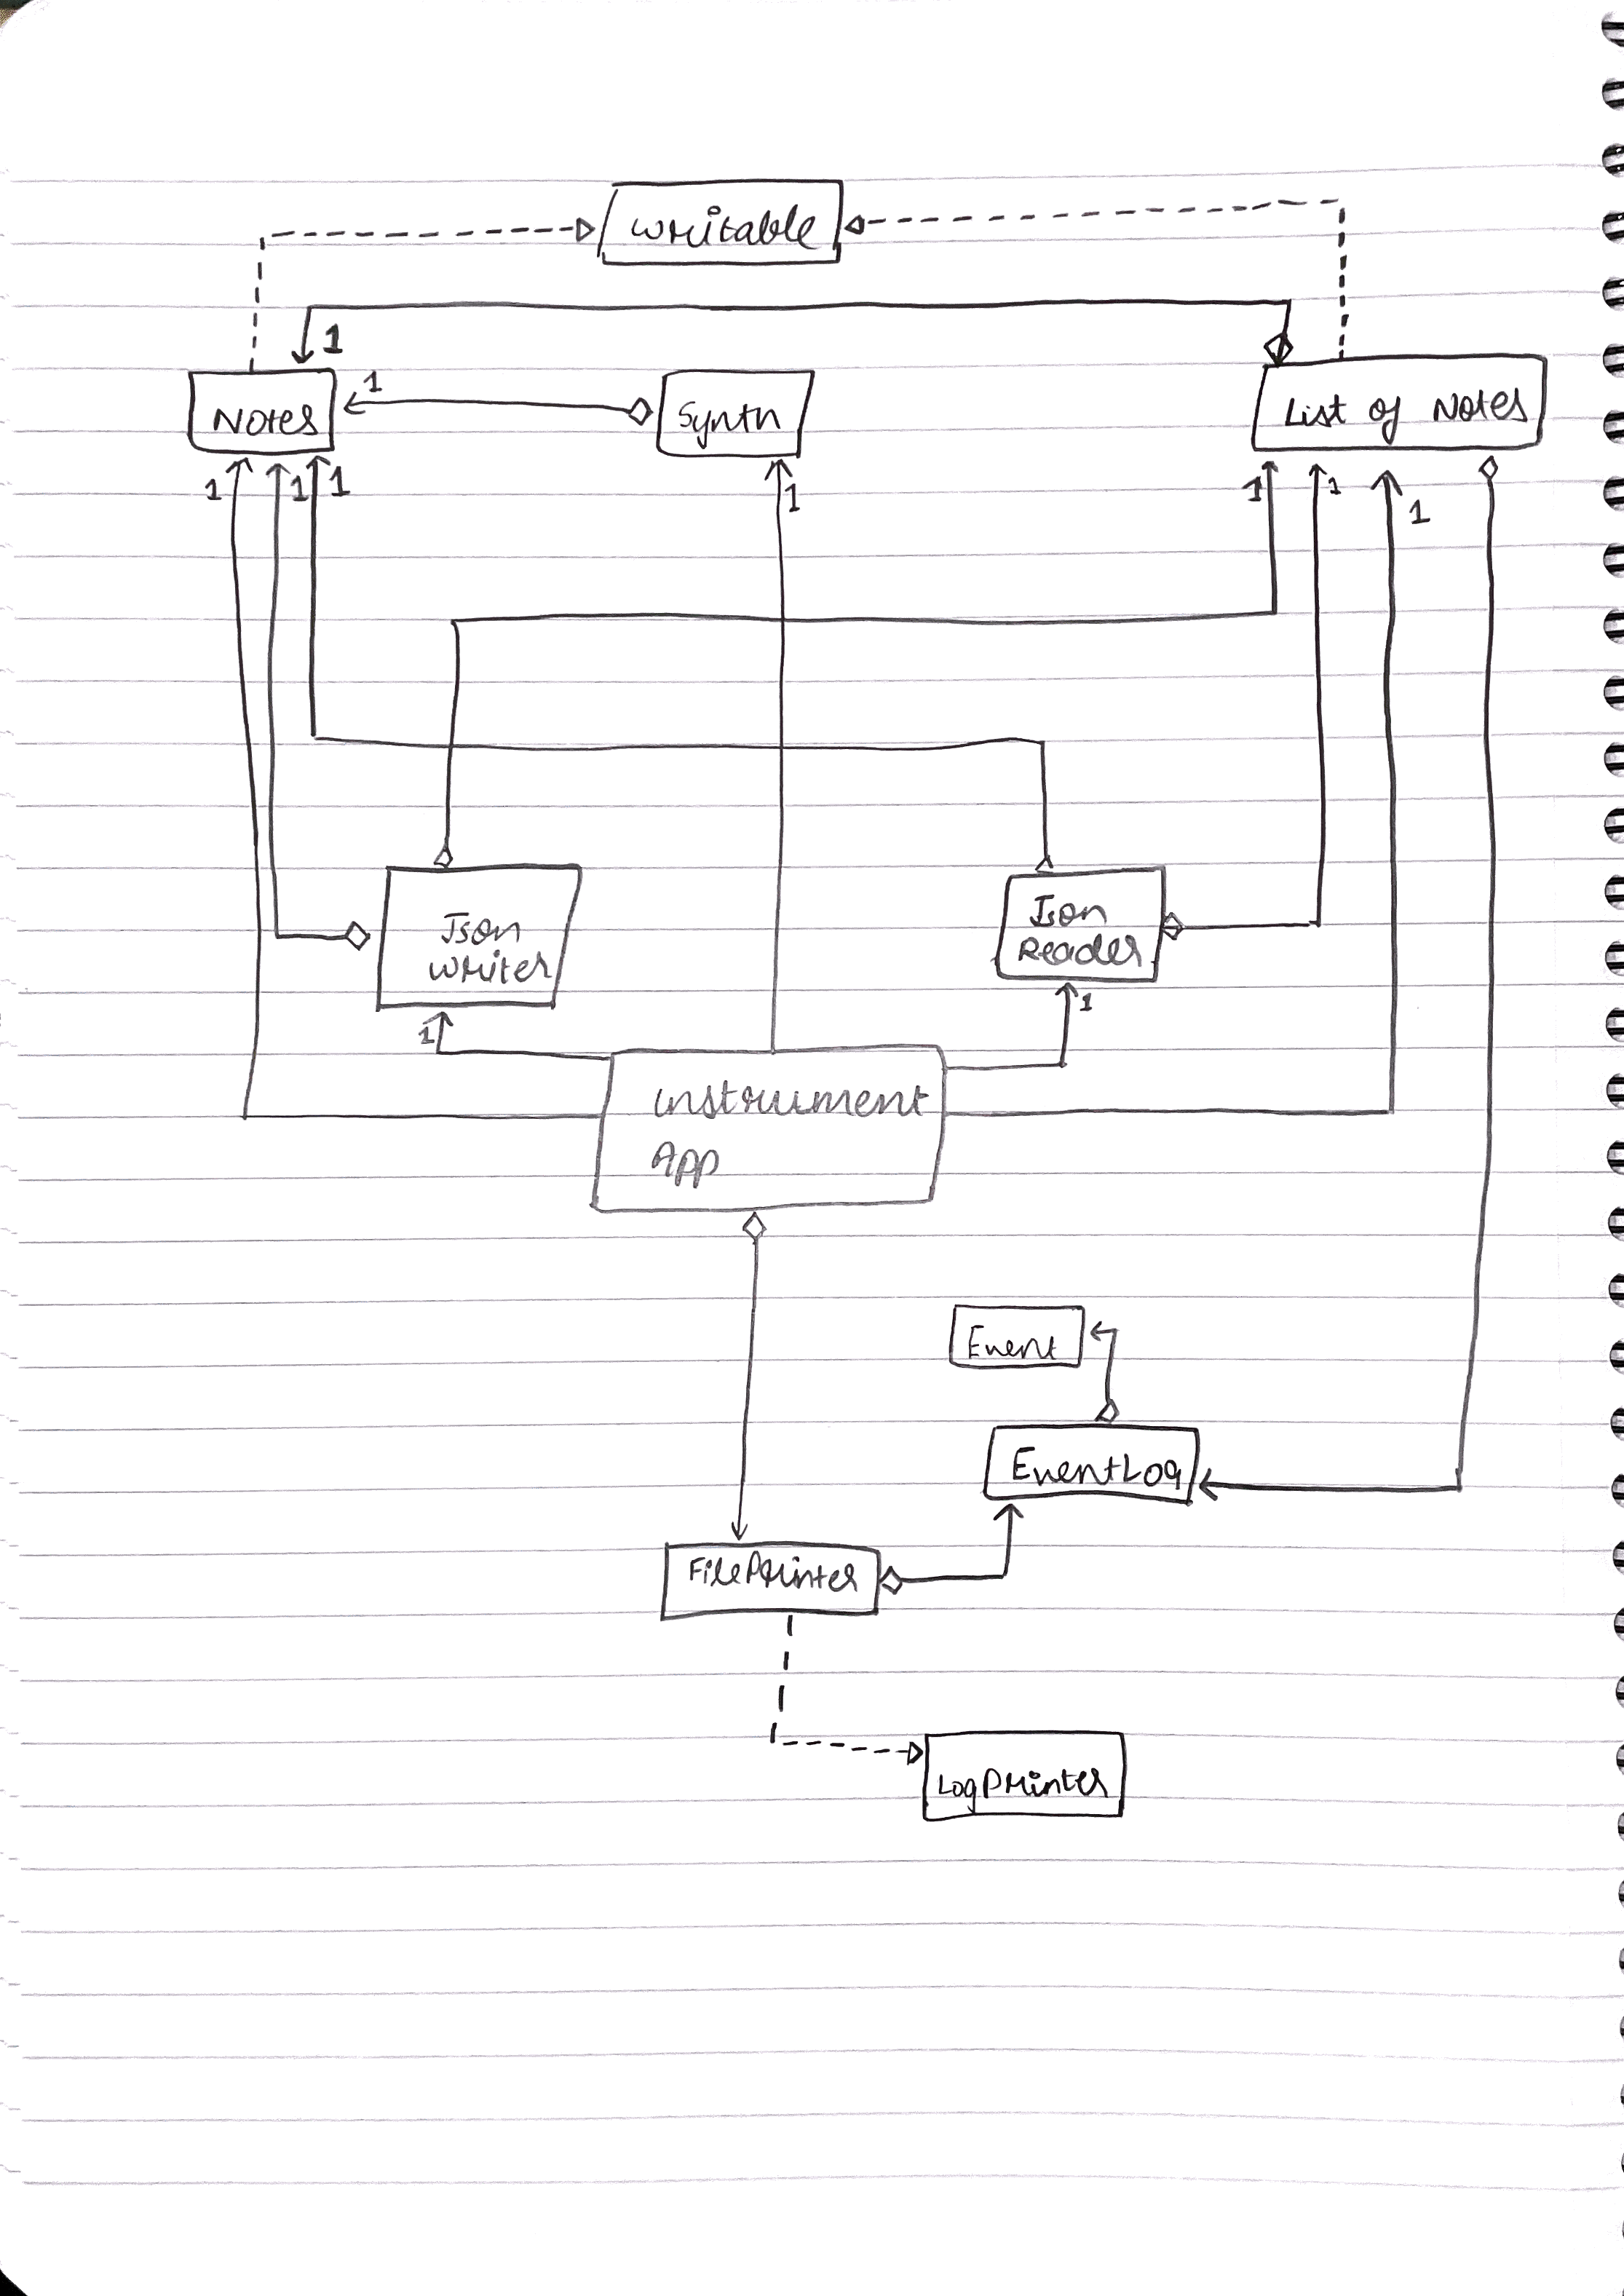 Writable
1
1
Notes
Synth
List of Notes
1
1
1
1
1
1
1
Json
Writer
Json
Reader
1
1
instrument
App
Event
EventLog
FilePrinter
LogPrinter